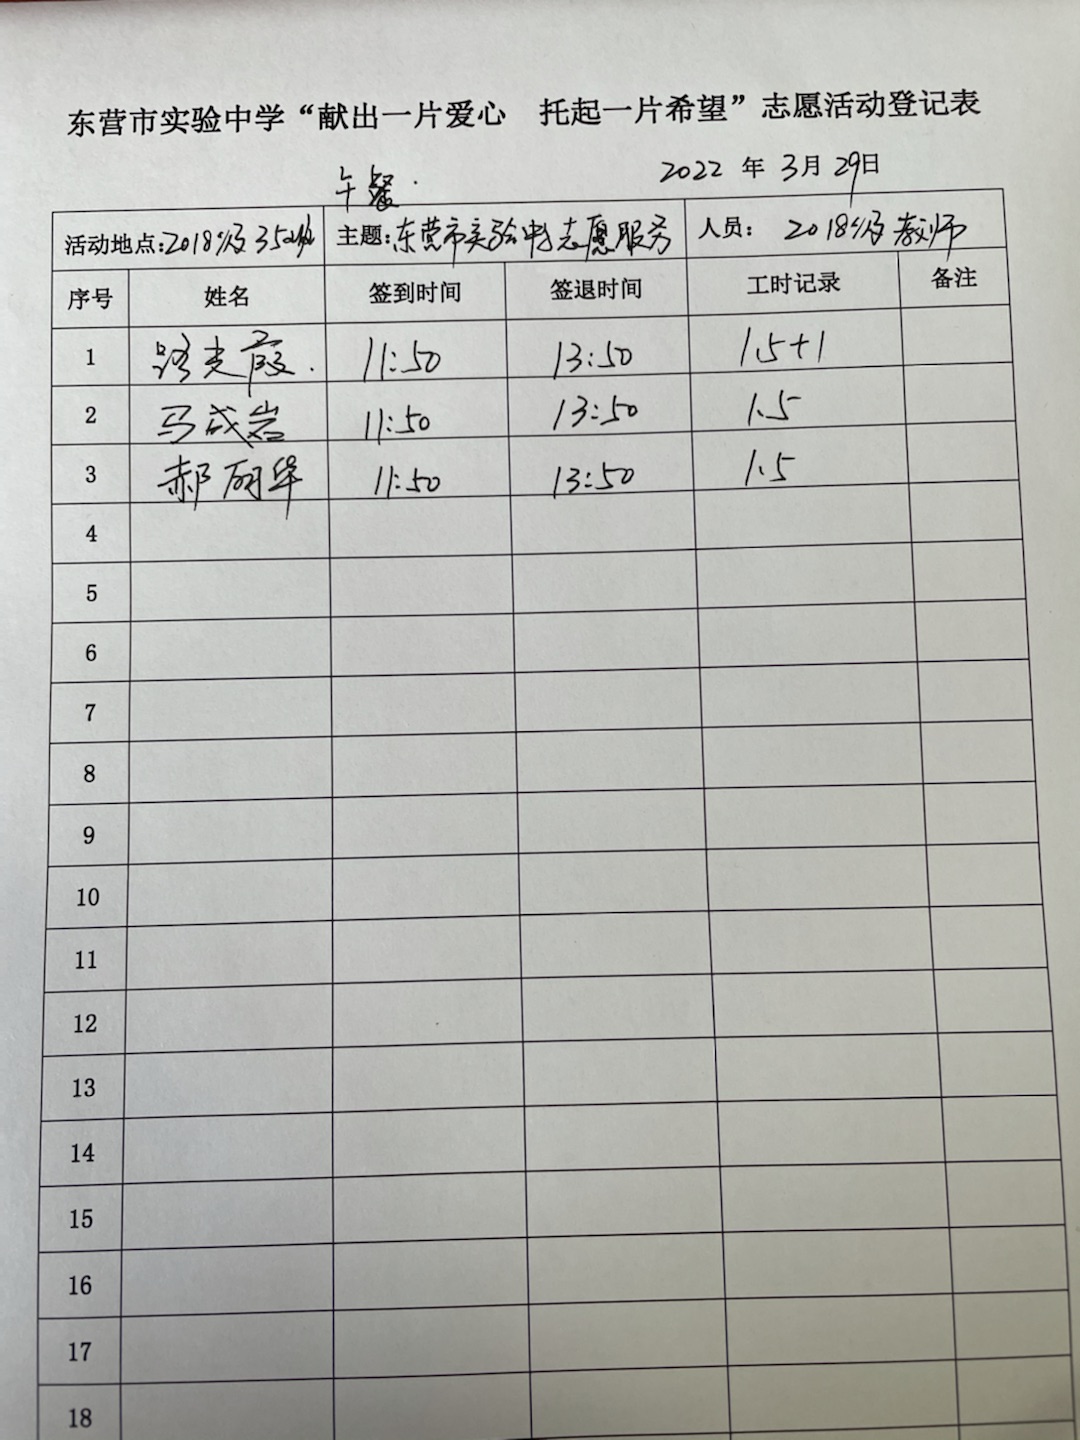 东营市实验中学“献出一片爱心 托起一片希望”志愿活动登记表
午餐 2022 年 3月 29日
活动地点:2018级 主题:东营市实验中学志愿服务 人员: 2018级教师
序号 姓名 签到时间 签退时间 工时记录 备注
1 路光霞 11:50 13:50 1.5+1
2 马成岩 11:50 13:50 1.5
3 郝丽华 11:50 13:50 1.5
4
5
6
7
8
9
10
11
12
13
14
15
16
17
18